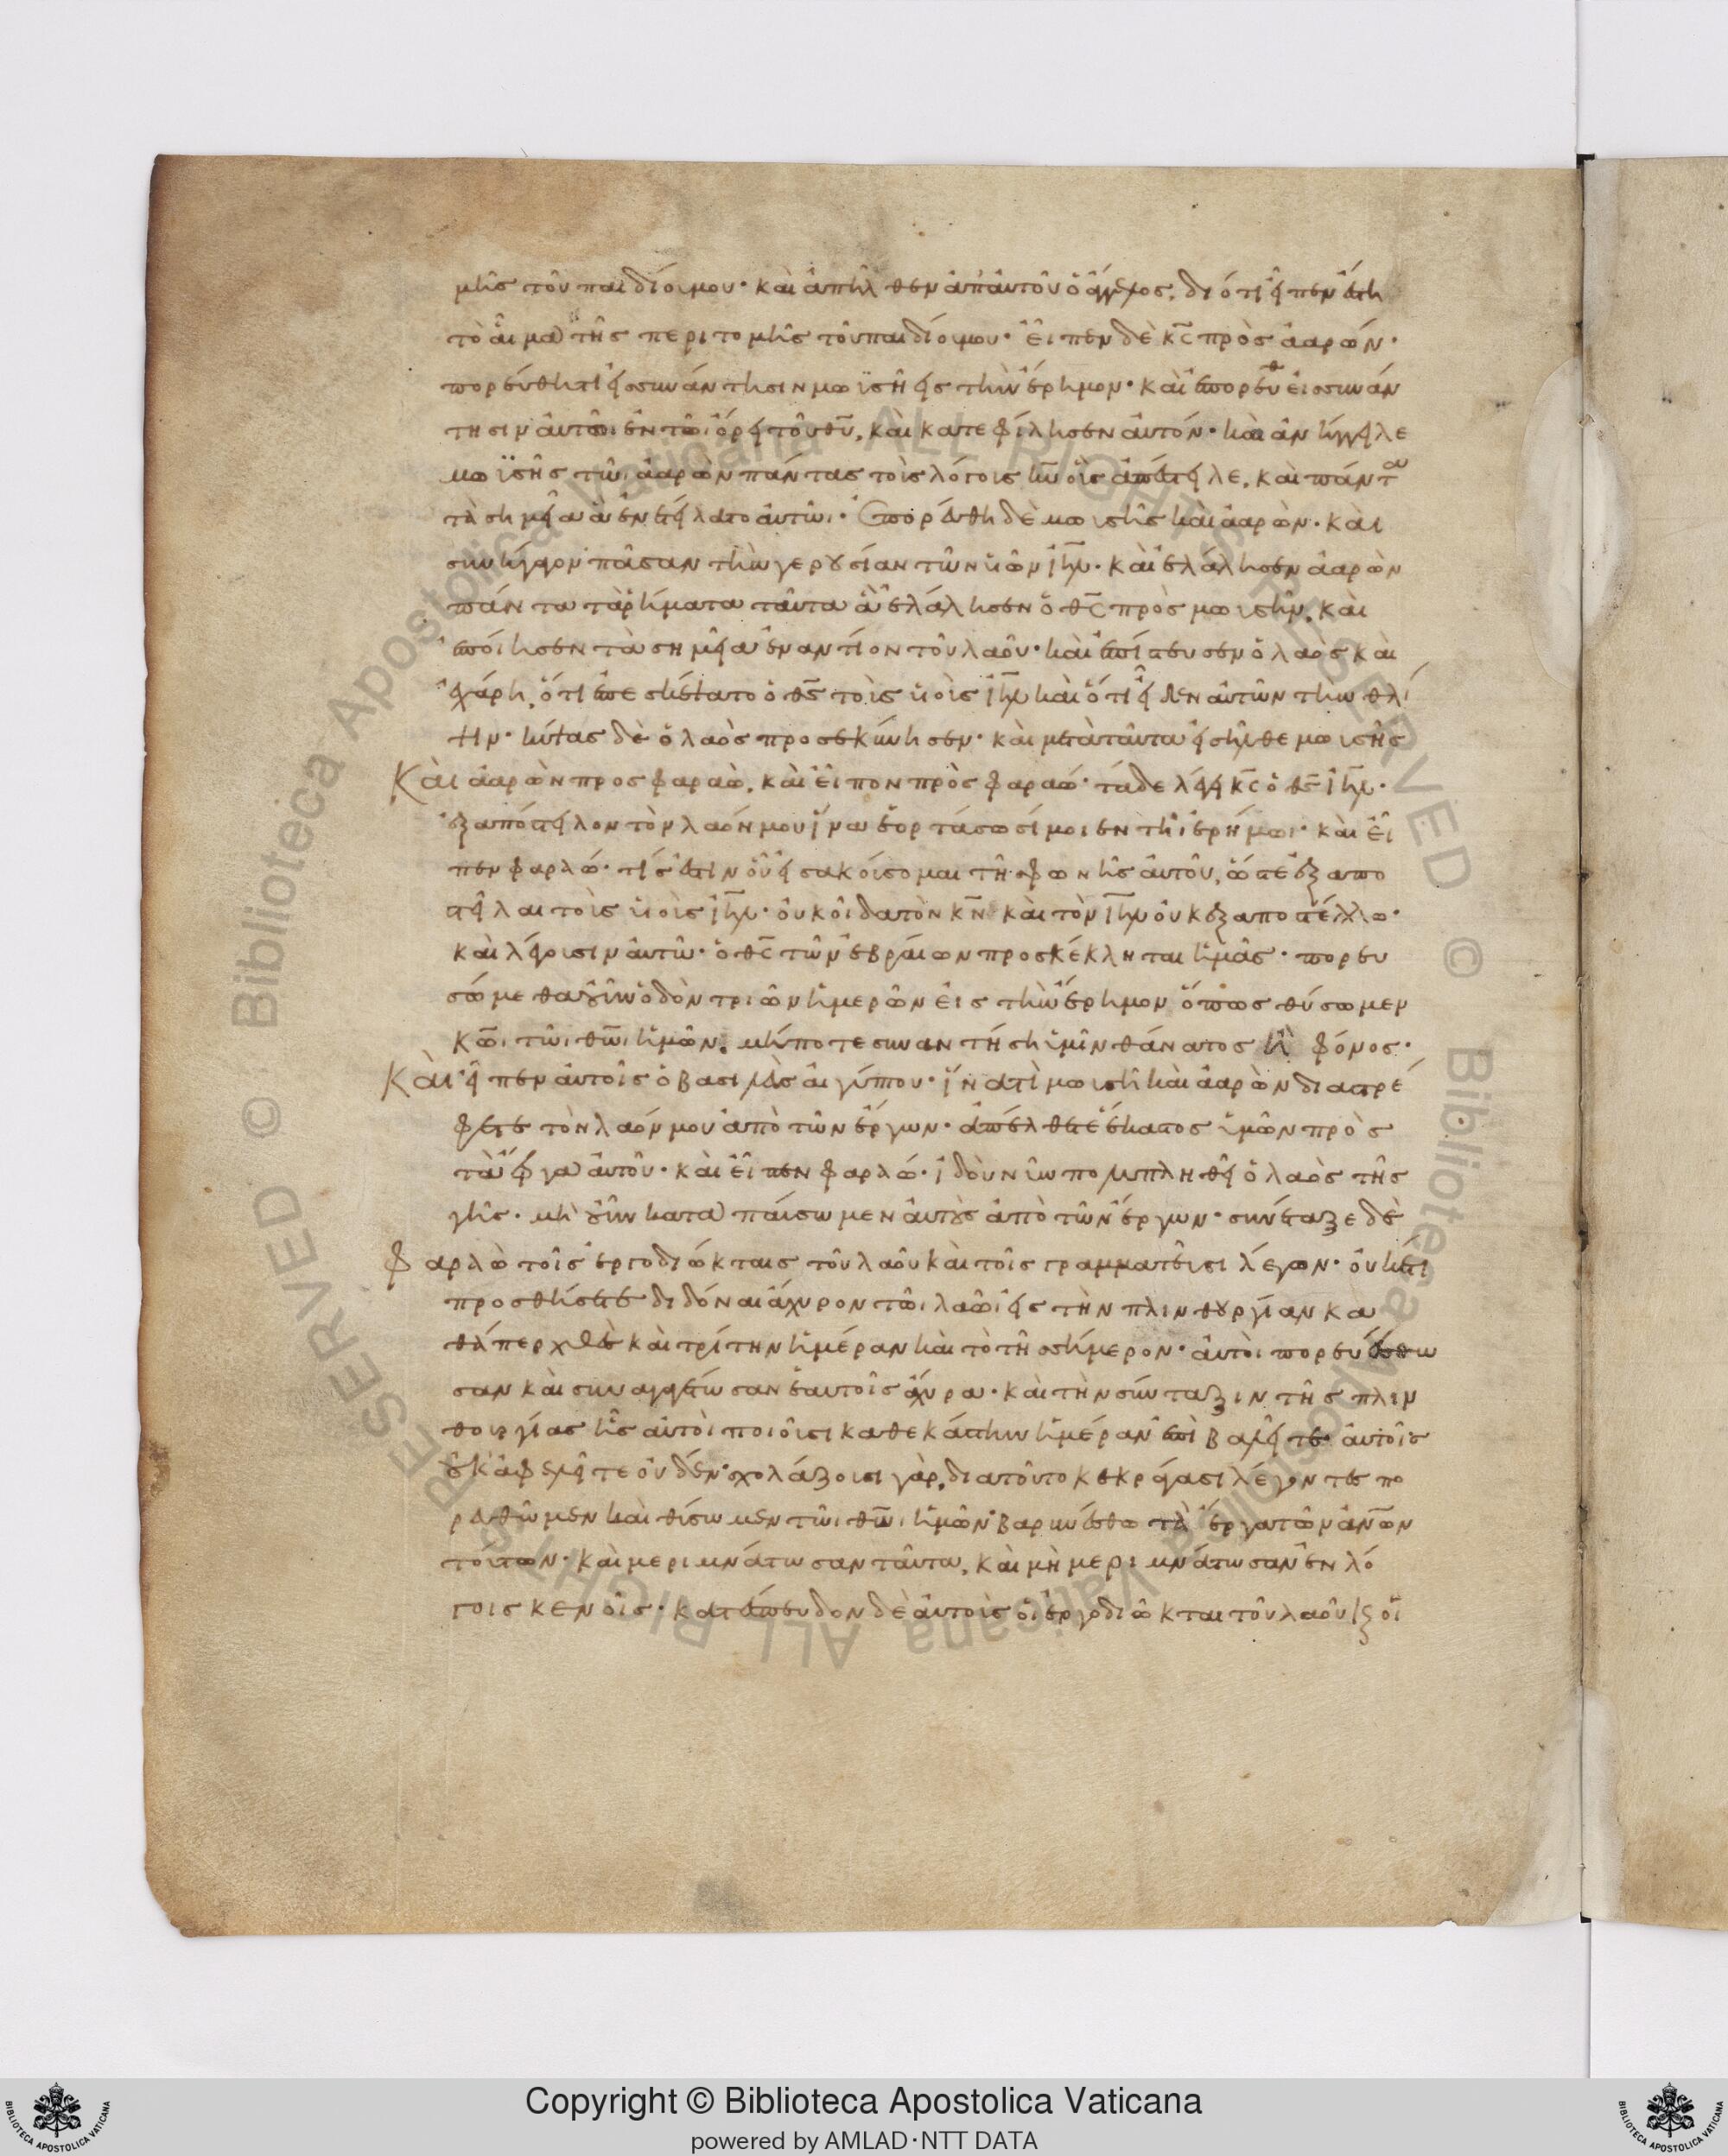 μῆς τοῦ παιδίου μου· καὶ ἀπῆλθεν ἀπ' αὐτοῦ ὁ ἄγγελος, διότι εἶπεν ἔστη
τὸ αἷμα τῆς περιτομῆς τοῦ παιδίου μου· εἶπεν δὲ κ̅ς̅ πρὸς ἀαρών·
πορεύθητι εἰς συνάντησιν μωϋσῆ εἰς τὴν ἔρημον· καὶ ἐπορεύθ εἰς συνάν
τησιν αὐτῶι ἐν τῶι ὄρει τοῦ θ̅υ̅, καὶ κατεφίλησεν αὐτόν· καὶ ἀνήγγειλε
μωϋσῆς τῶι ἀαρὼν πάντας τοὺς λόγους κ̅υ̅ οὓς ἀπέστειλε, καὶ πάντα
τὰ σημεῖα ἃ ἐνετείλατο αὐτῶι· ἐπορεύθη δὲ μωυσῆς καὶ ἀαρὼν· καὶ
συνήγαγον πᾶσαν τὴν γερουσίαν τῶν υἱῶν ι̅η̅λ̅· καὶ ἐλάλησεν ἀαρὼν
πάντα τὰ ῥήματα ταῦτα ἃ ἐλάλησεν ὁ θ̅ς̅ πρὸς μωυσῆν, καὶ
ἐποίησεν τὰ σημεῖα ἐναντίον τοῦ λαοῦ· καὶ ἐπίστευσεν ὁ λαὸς καὶ
ἐχάρη, ὅτι ἐπεσκέψατο ὁ θ̅ς̅ τοὺς υἱοὺς ι̅η̅λ̅ καὶ ὅτι εἶδεν αὐτῶν τὴν θλί
ψιν· κύψας δὲ ὁ λαὸς προσεκύνησεν· καὶ μετὰ ταῦτα εἰσῆλθε μωυσῆς
Καὶ ἀαρὼν προς φαραὼ, καὶ εἶπον πρὸς φαραώ· τάδε λέγει κ̅ς̅ ὁ θ̅ς̅ ι̅η̅λ̅·
ἐξαπόστειλον τὸν λαόν μου ἵνα ἑορτάσωσί μοι ἐν τῆι ἐρήμωι· καὶ εἶ
πεν φαραώ· τίς ἐστιν οὗ εἰσακούσομαι τῆς φωνῆς αὐτοῦ, ὥστε ἐξαπο
στεῖλαι τοὺς υἱοὺς ι̅η̅λ̅· οὐκ οἶδα τὸν κ̅ν̅ καὶ τὸν ι̅η̅λ̅ οὐκ ἐξαποστέλλω·
καὶ λέγουσιν αὐτῶ· ὁ θ̅ς̅ τῶν ἑβραίων προσκέκληται ἡμᾶς· πορευ
σώμεθα οὖν ὁδὸν τριῶν ἡμερῶν εἰς τὴν ἔρημον ὅπως θύσωμεν
κ̅ω̅ι τῶι θ̅ω̅ι ἡμῶν, μήποτε συναντήση ἡμῖν θάνατος ἢ φόνος·
Καὶ εἶπεν αὐτοῖς ὁ βασιλεὺς αἰγύπου· ἵνα τί μωυσῆ καὶ ἀαρὼν διαστρέ
φετε τὸν λαόν μου ἀπὸ τῶν ἔργων· ἀπέλθετε ἕκαστος ὑμῶν πρὸς
τὰ ἔργα αὐτοῦ· καὶ εἶπεν φαραώ· ἰδοὺ νῦν πολυπληθεῖ ὁ λαὸς τῆς
γῆς· μὴ οὖν καταπαύσωμεν αὐτοὺς ἀπὸ τῶν ἔργων· συνέταξε δὲ
Φαραὼ τοῖς ἐργοδιώκταις τοῦ λαοῦ καὶ τοῖς γραμματεῦσι λέγων· οὐκέτι
προσθήσετε διδόναι ἄχυρον τῶι λαῶι εἰς τὴν πλινθουργίαν κα
θάπερ χθὲς καὶ τρίτην ἡμέραν καὶ τὸ τῆς σήμερον· αὐτοὶ πορευέσθω
σαν καὶ συναγαγέτωσαν ἑαυτοῖς ἄχυρα· καὶ τὴν σύνταξιν τῆς πλιν
θουργίας ἧς αὐτοὶ ποιοῦσι καθεκάστην ἡμέραν ἐπιβαλεῖτε αὐτοῖς
οὐκ ἀφελεῖτε οὐδέν· σχολάζουσι γὰρ, διατοῦτο κεκράγασι λέγοντες πο
ρευθῶμεν καὶ θύσωμεν τῶι θ̅ω̅ι ἡμῶν· βαρυνέσθω τὰ ἔργα τῶν ἀν̅ω̅ν
τούτων· καὶ μεριμνάτωσαν ταῦτα, καὶ μὴ μεριμνάτωσαν ἐν λό
γοις κενοῖς· κατέσπευδον δὲ αὐτοὺς οἱ ἐργοδιῶκται τοῦ λαοῦ κ οἱ
Copyright © Biblioteca Apostolica Vaticana
powered by AMLAD·NTT DATA